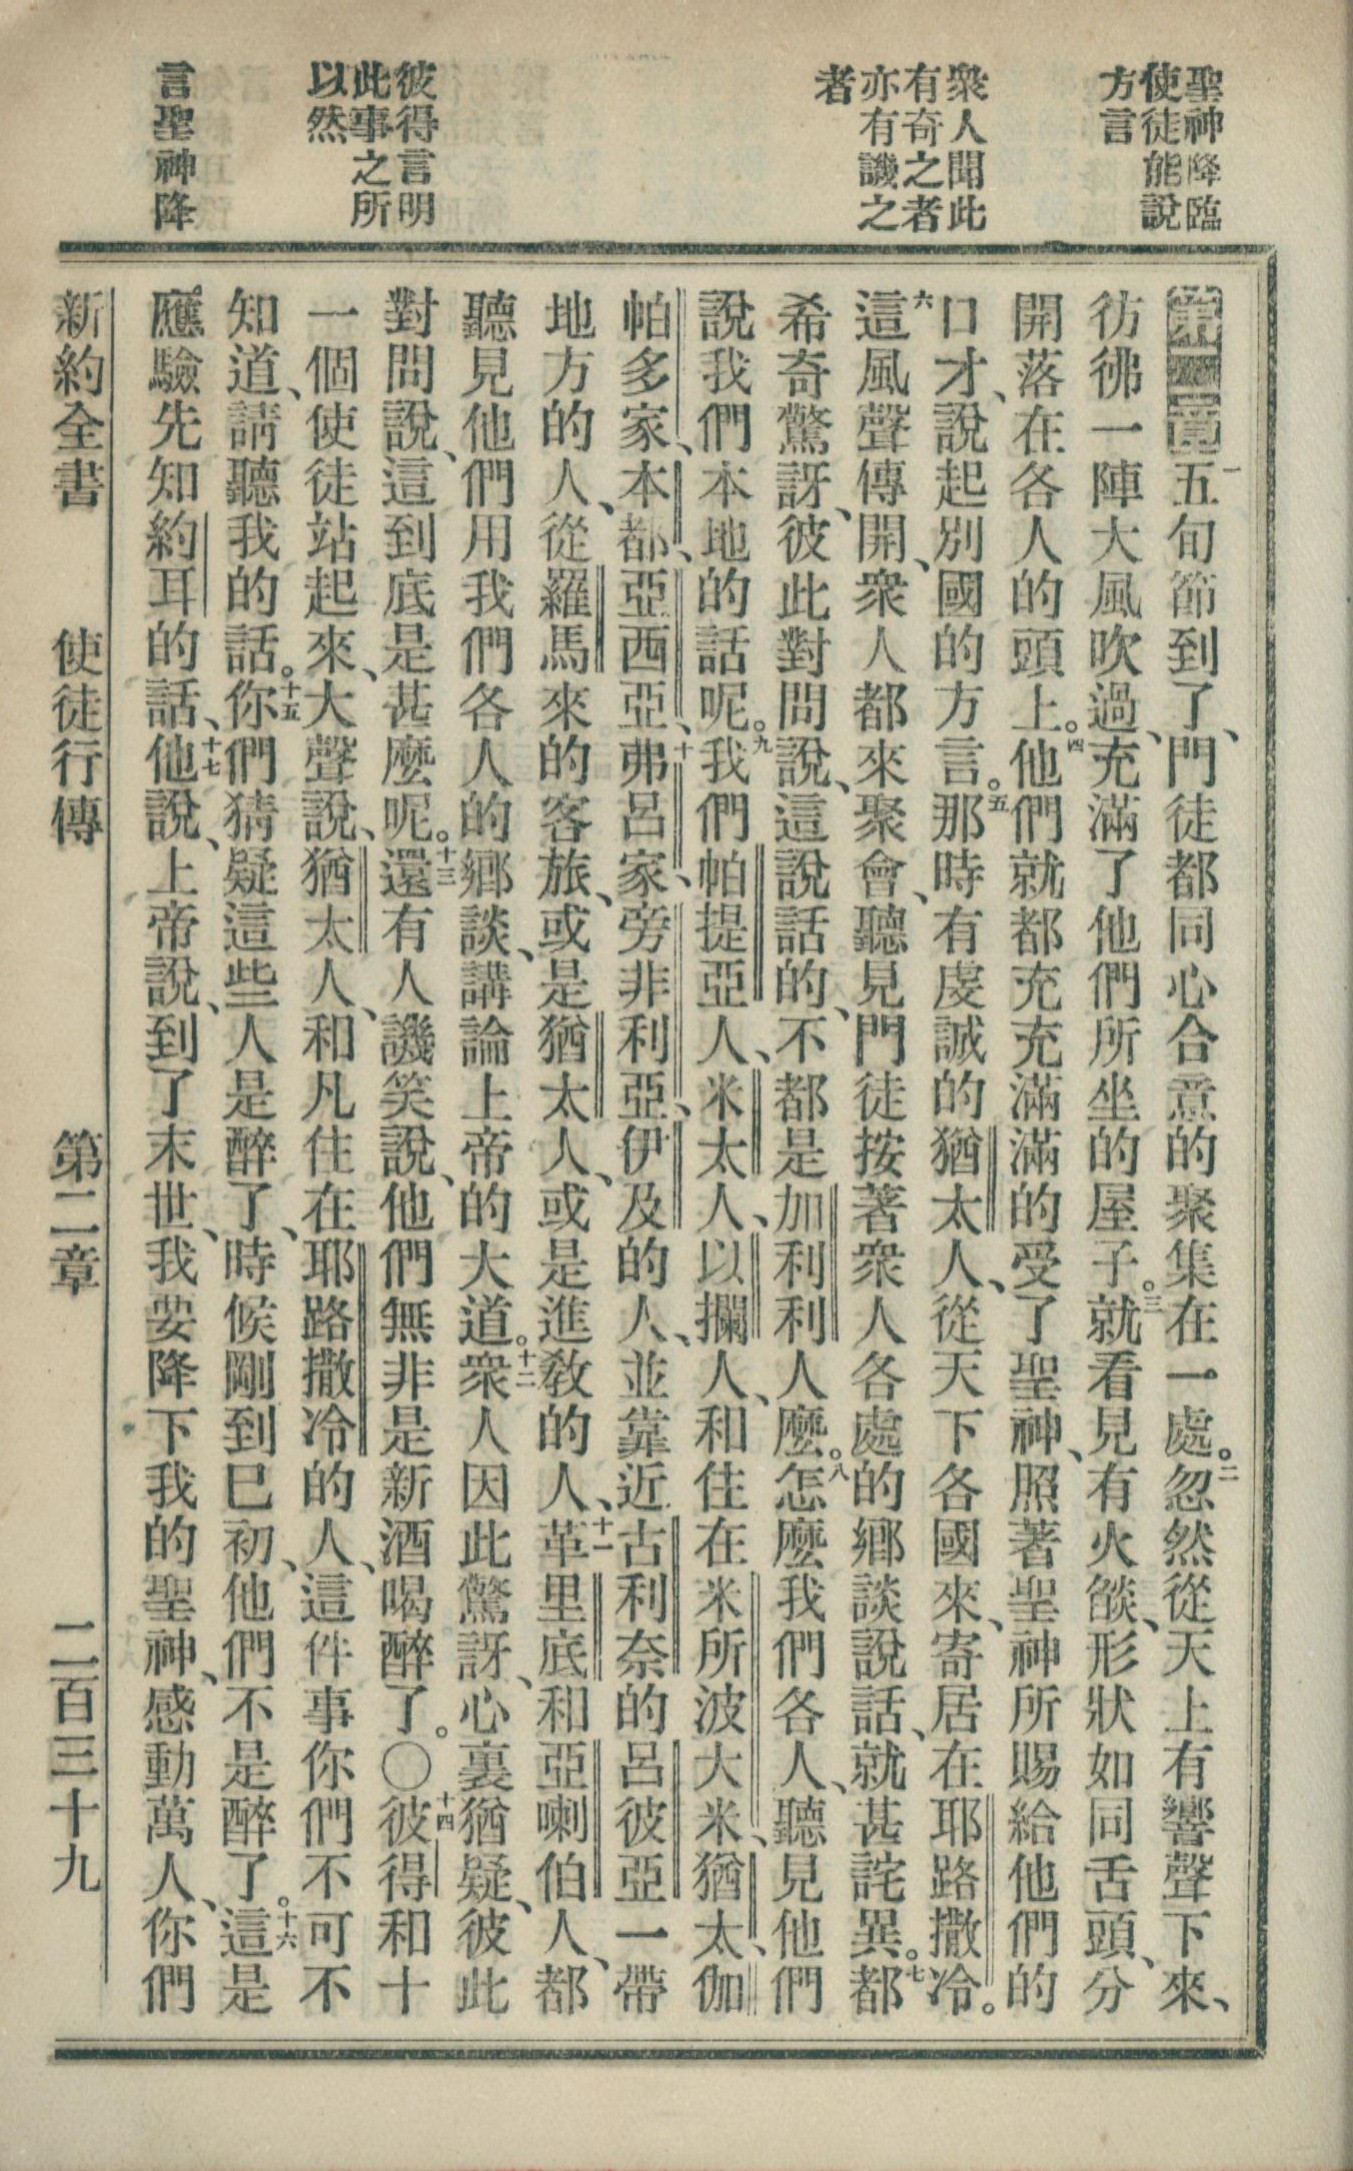 聖神降臨
使徒能說
方言
衆人聞此
有奇之者
亦有譏之
者
彼得言明
此事之所
以然
言聖神降
第二章一五旬節到了、門徒都同心合意的聚集在一處。二忽然從天上有響聲下來、
彷彿一陣大風吹過、充滿了他們所坐的屋子。三就看見有火燄、形狀如同舌頭、分
開落在各人的頭上。四他們就都充充滿滿的受了聖神、照著聖神所賜給他們的
口才、說起別國的方言。五那時有虔誠的猶太人、從天下各國來、寄居在耶路撒冷。
六這風聲傳開、衆人都來聚會、聽見門徒按著衆人各處的鄉談說話、就甚詫異。七都
希奇驚訝、彼此對問說、這說話的、不都是加利利人麼。八怎麼我們各人、聽見他們
說我們本地的話呢。九我們帕提亞人、米太人、以攔人、和住在米所波大米、猶太、伽
帕多家、本都、亞西亞、十弗呂家、旁非利亞、伊及的人、並靠近古利奈的呂彼亞一帶
地方的人、從羅馬來的客旅、或是猶太人、或是進教的人、十一革里底和亞喇伯人、都
聽見他們用我們各人的鄉談、講論上帝的大道。十二衆人因此驚訝、心裏猶疑、彼此
對問說、這到底是甚麼呢。十三還有人譏笑說、他們無非是新酒喝醉了。〇十四彼得和十
一個使徒站起來、大聲說、猶太人、和凡住在耶路撒冷的人、這件事你們不可不
知道、請聽我的話。十五你們猜疑這些人是醉了、時候剛到巳初、他們不是醉了。十六這是
應驗先知約耳的話、十七他說、上帝說、到了末世、我要降下我的聖神、感動萬人、你們
新約全書 使徒行傳 第二章 二百三十九